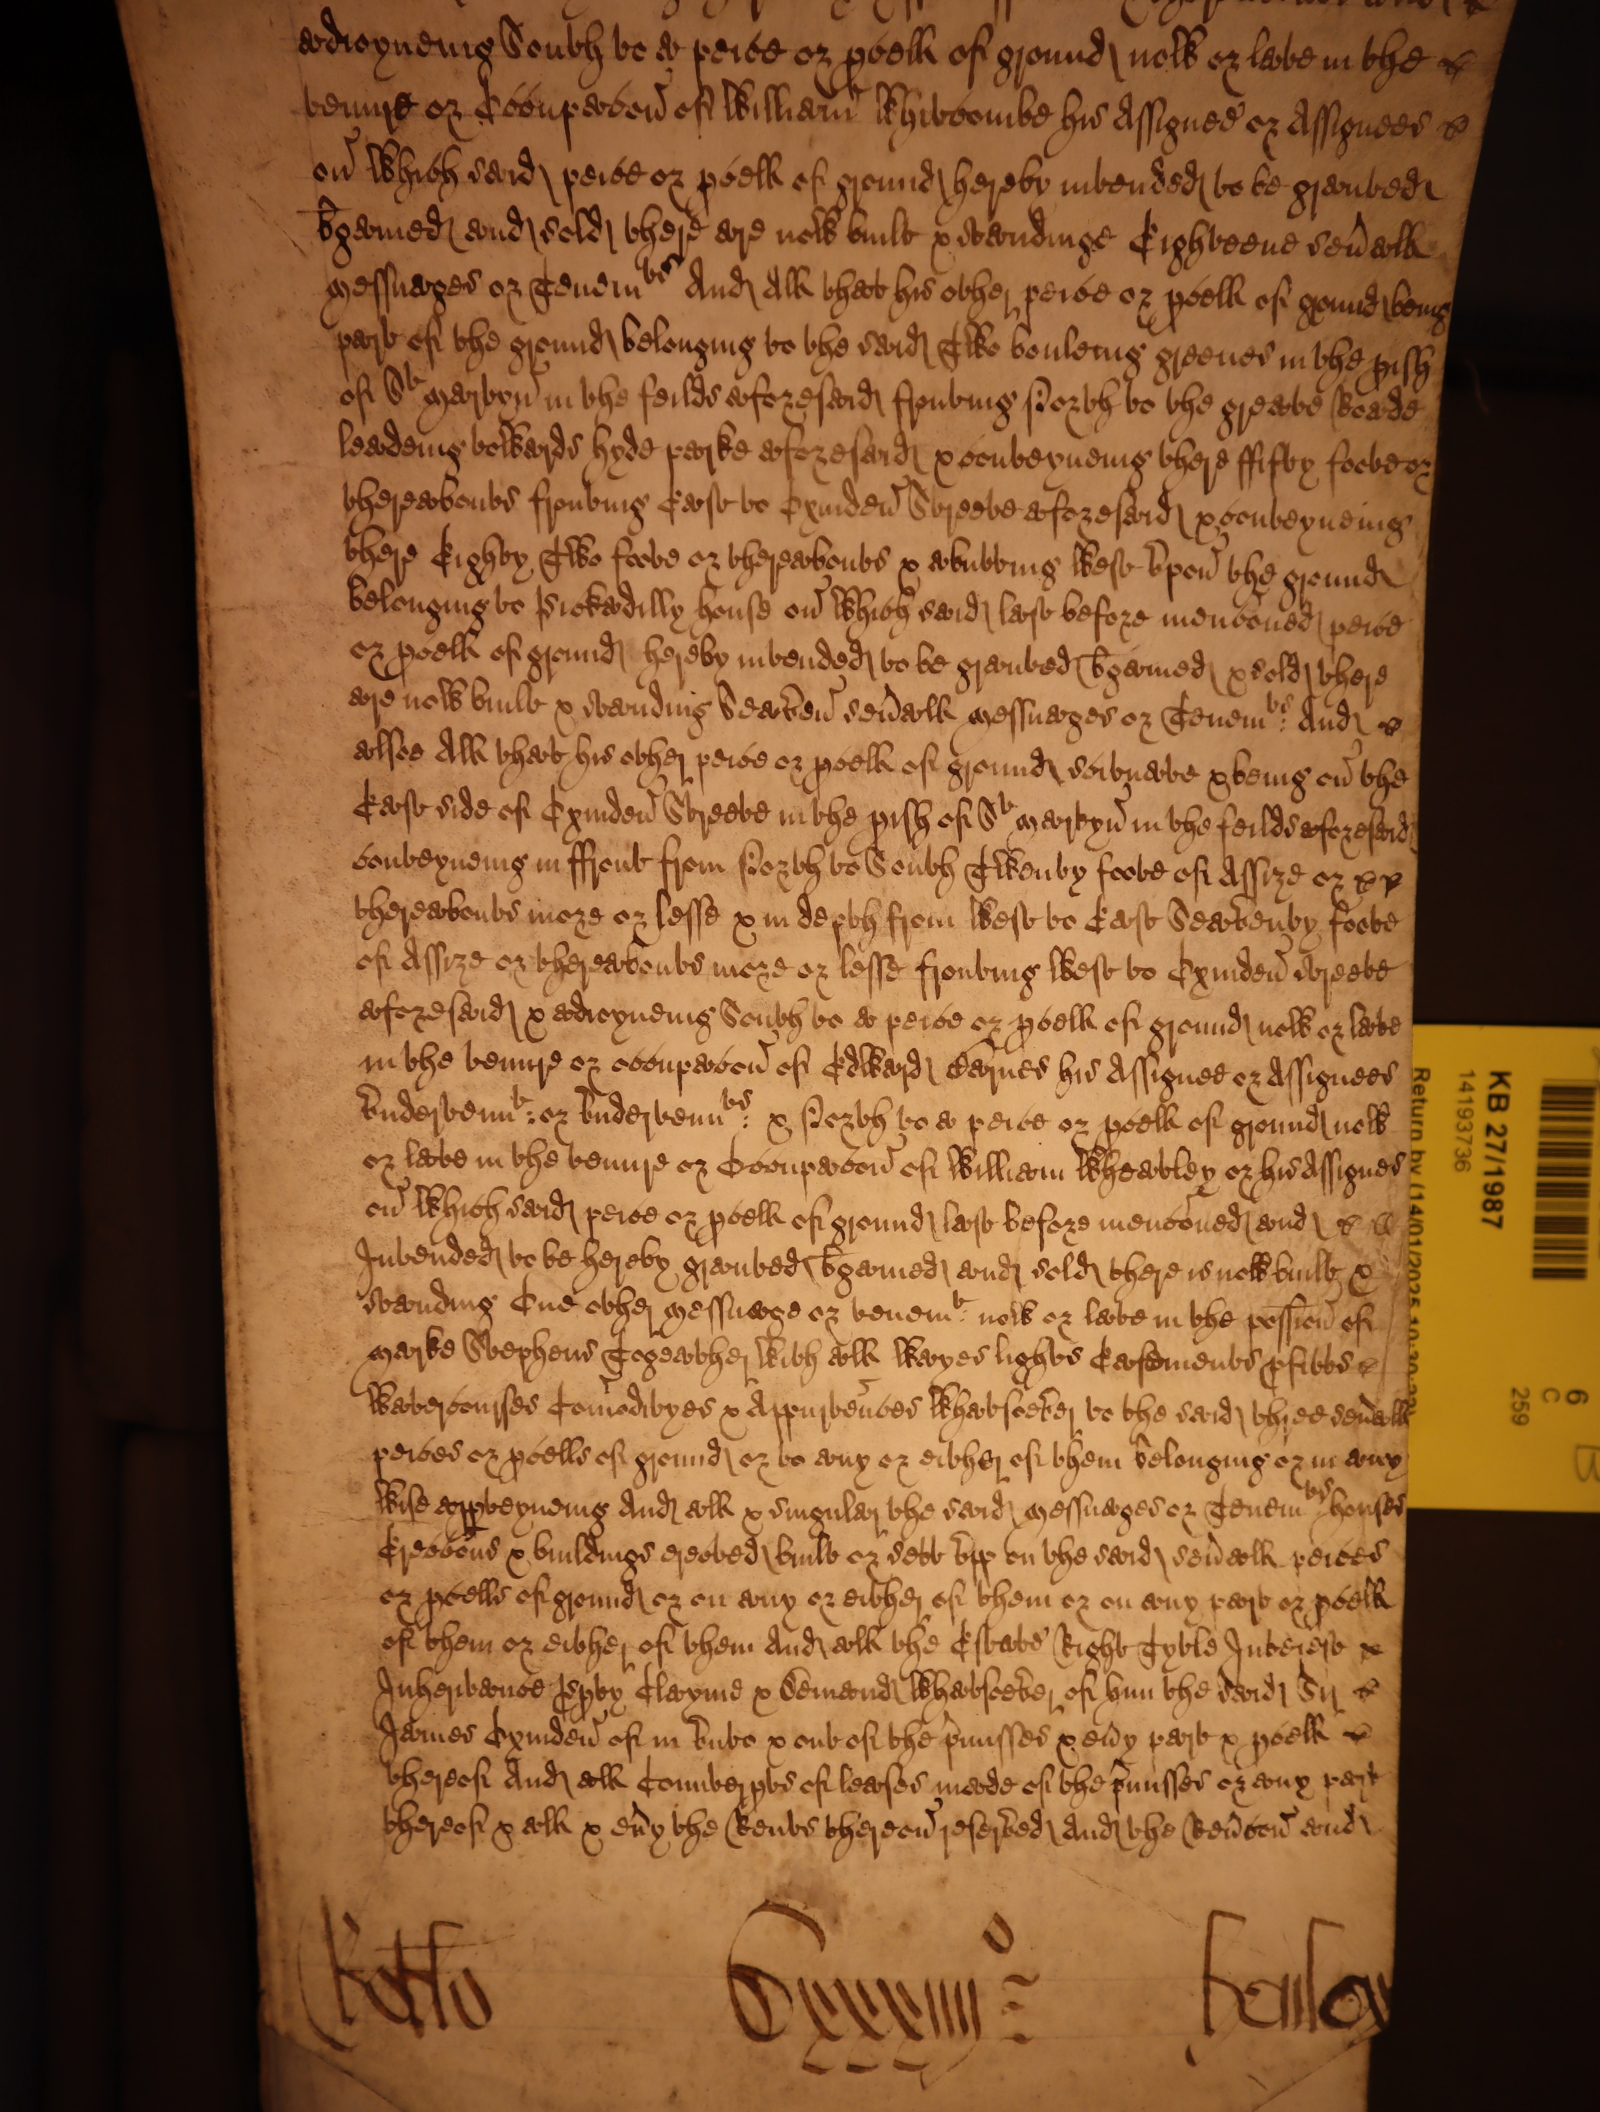 adioyneing South to a peice or pcell of ground now or late in the
tenure or Occupacon of William Whitcombe his Assignee or Assignees
on which said peice or pcell of ground hereby intended to be granted
bgained and sold there are now built & standinge Eighteene seuall
Messuages or Tenemts And All that his other peice or pcell of ground being
part of the ground belonging to the said Two bouleing greenes in the pish
of St Martyn in the feilds aforesaid fronting North to the greate Roade
leadeing towards hyde parke aforesaid & conteyneing there ffifty foote or
thereabouts fronting East to Oxinden Streete aforesaid & conteyneing
there Eighty Two foote or thereabouts & abutting West vpon the ground
belonging to Pickadilly house on which said last before menconed peice
or pcell of ground hereby intended to be granted bgained & sold there
are now built & standing Seaven seuall Messuages or Tenemts: And
alsoe All that his other peice or pcell of ground scituate & being on the
East side of Oxinden Streete in the pish of St Martyn in the feilds aforesaid
conteyneing in ffront from North to South Twenty foote of Assize or
thereabouts more or lesse & in depth from West to East Seaventy foote
of Assize or thereabouts more or lesse fronting West to Oxinden streete
aforesaid & adioyneing South to a peice or pcell of ground now or late
in the tenure or occupacon of Edward Carnes his Assignee or Assignees
vndertennt: or vndertennts: & North to a peice or pcell of ground now
or late in the tenure or Occupacon of William Wheatley or his Assignes
on which said peice or pcell of ground last before menconed and
Intended to be hereby granted bgained and sold there is now built &
standing One other Messuage or tenemt: now or late in the possion of
Marke Stephens Togeather with all wayes lights Easements pfitts
watercourses Comodityes & Appurtences whatsoever to the said three seuall
peices or pcells of ground or to any or either of them belonging or in any
wise apperteyneing And all & singular the said Messuages or Tenemts houses
Ereccons & buildings erected built or sett vpp on the said seuall peices
or pcells of ground or on any or either of them or on any part or pcell
of them or either of them And all the Estate Right Tytle Interest
Inheritance Ppty Clayme & Demand whatsoever of him the said Sr
James Oxinden of in vnto & out of the pmisses & euy part & pcell
thereof And all Counterpts of leases made of the pmisses or any part
thereof & all & euy the Rents thereon reserved And the Reucon and
KB 27/1987
14193736
6
C
259